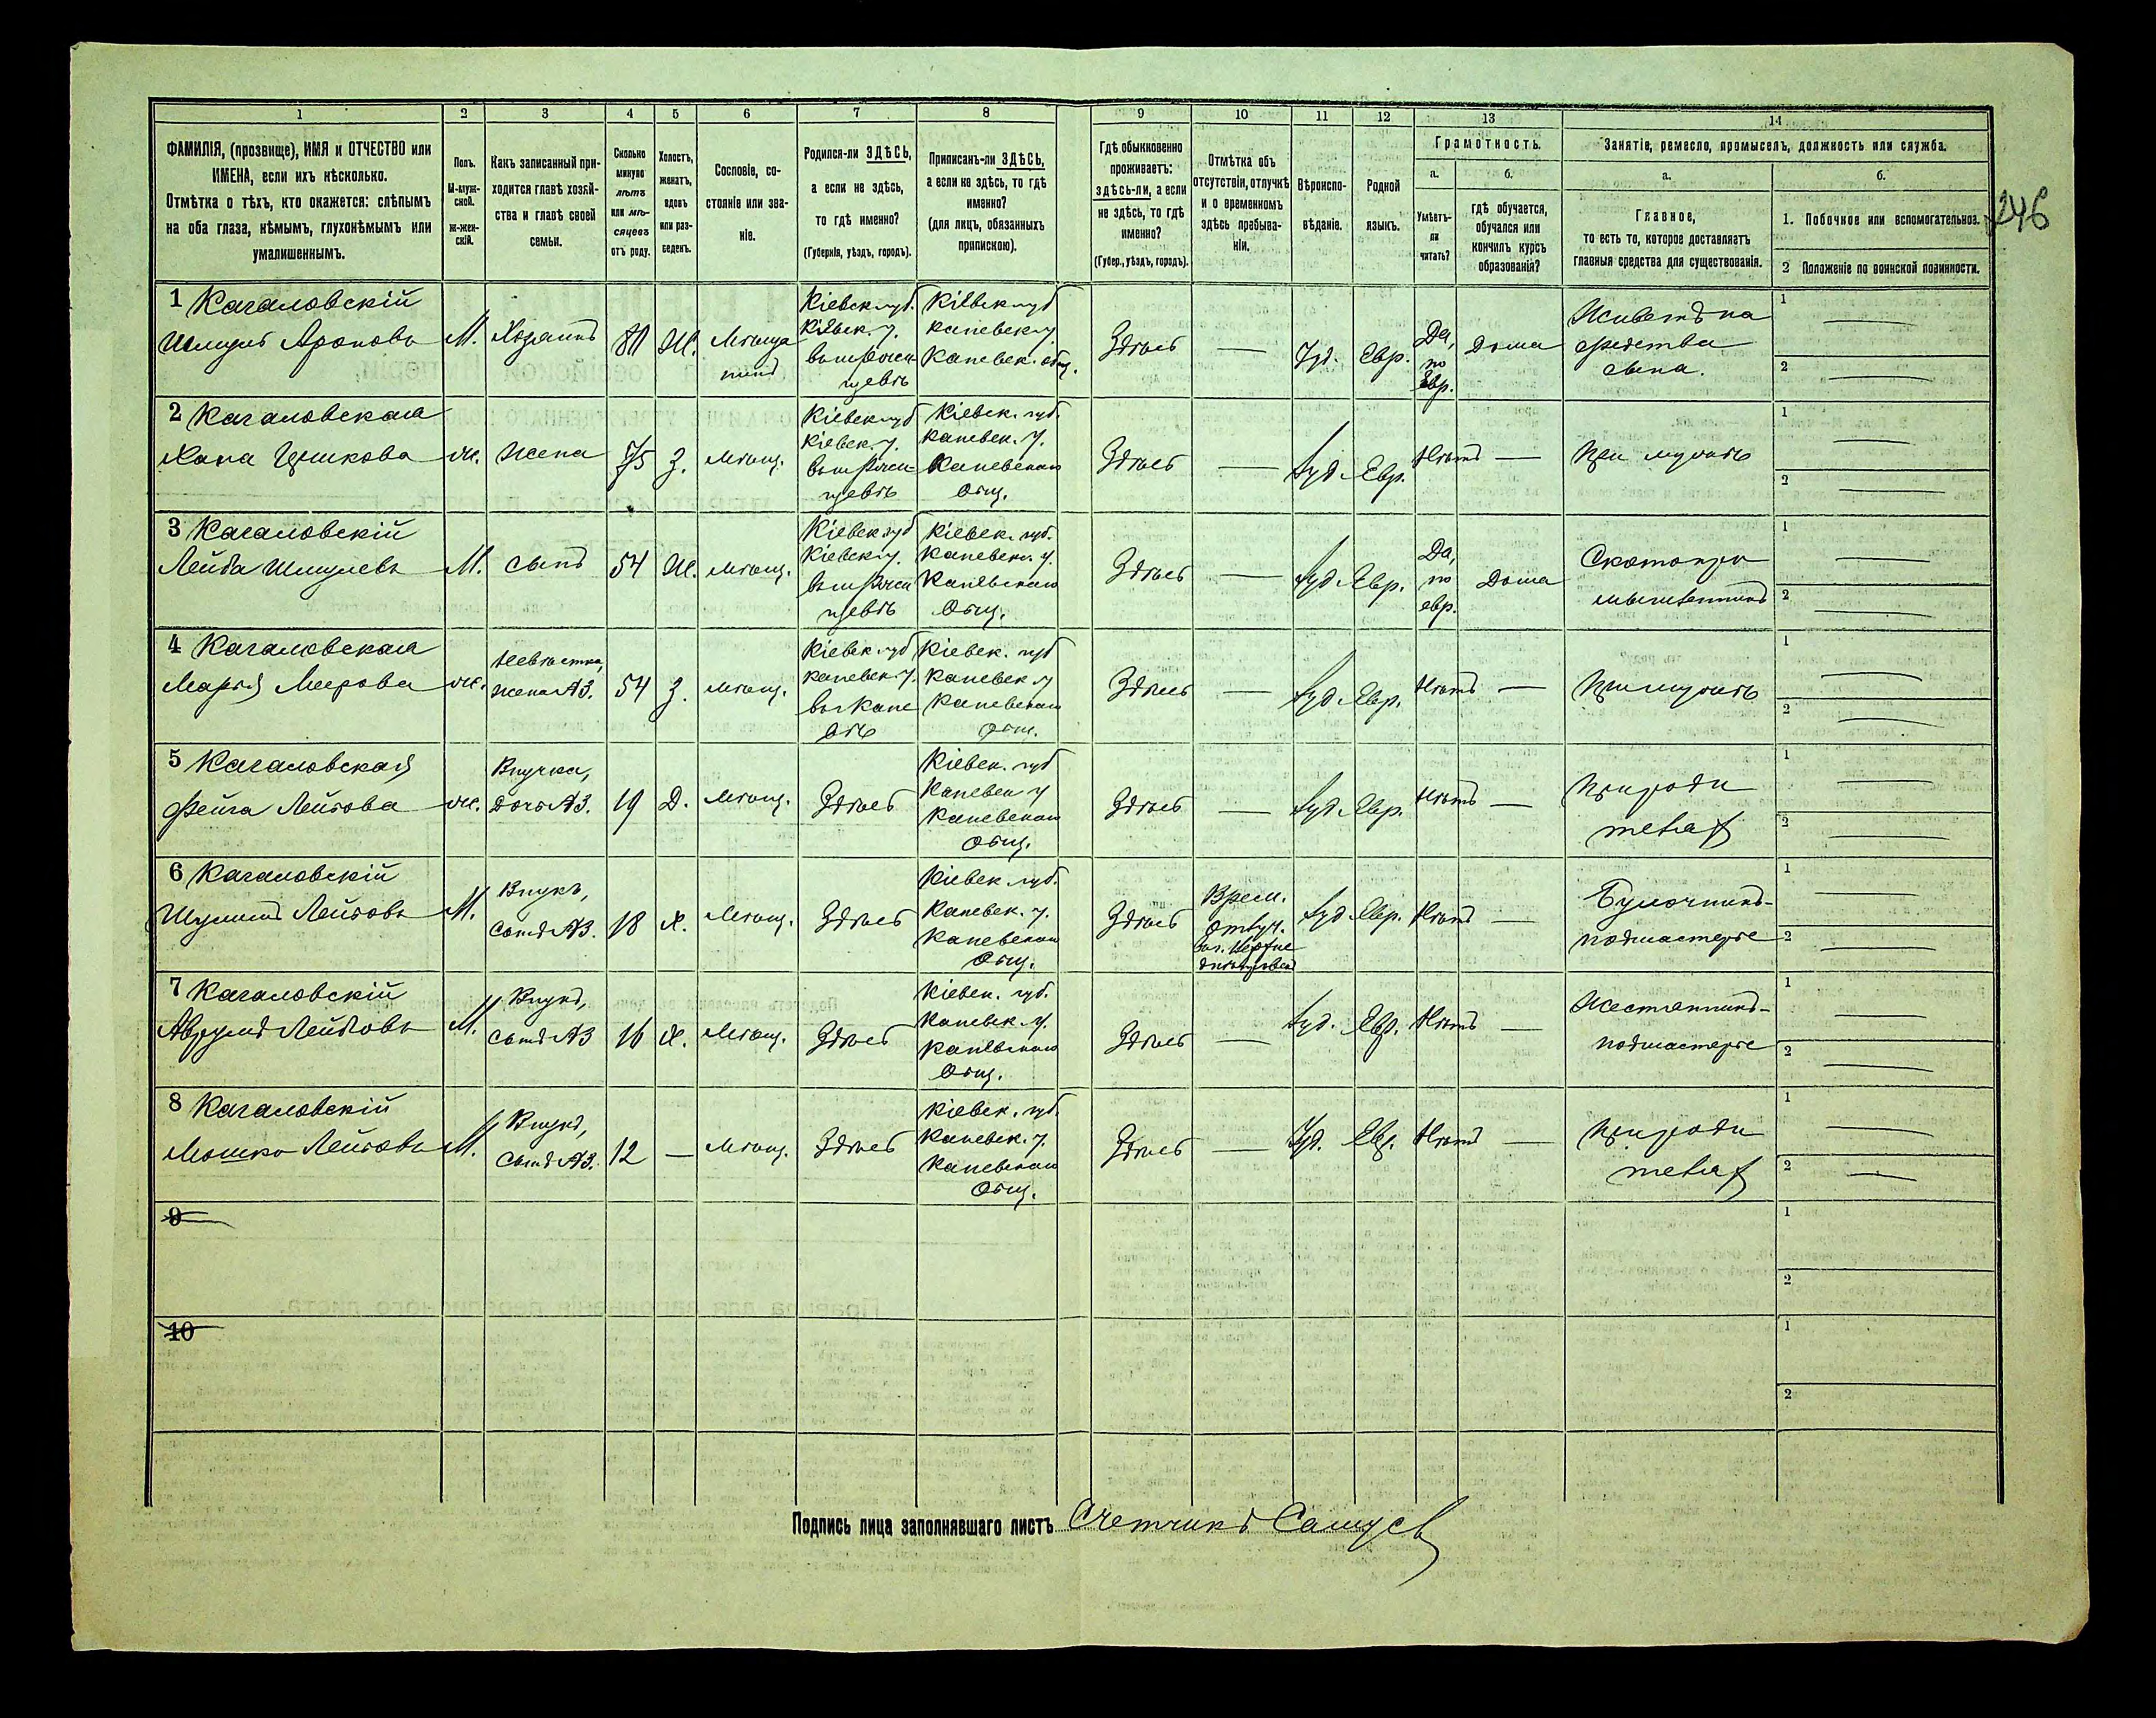 1
2
3
4
5
6
7
8
9
10
11
12
13
14
ФАМИЛІЯ, (прозвище), ИМЯ и ОТЧЕСТВО или
ИМЕНА, если ихъ нѣсколько.
Отмѣтка о тѣхъ, кто окажется: слѣпымъ
на оба глаза, нѣмымъ, глухонѣмымъ или
умалишеннымъ.
Полъ.
М-муж-
ской.
Ж-жен-
скій.
Какъ записанный при-
ходится главѣ хозяй-
ства и главѣ своей
семьи.
Сколько
минуло
лѣтъ
или мѣ-
сяцевъ
отъ роду.
Холостъ,
женатъ,
вдовъ
или раз-
веденъ.
Сословіе, со-
стояніе или зва-
ніе.
Родился-ли ЗДѢСЬ,
а если не здѣсь,
то гдѣ именно?
(Губернія, уѣздъ, городъ).
Приписанъ-ли ЗДѢСЬ,
а если не здѣсь, то гдѣ
именно?
(для лицъ, обязанныхъ
припискою).
Гдѣ обыкновенно
проживаетъ:
здѣсь-ли, а если
не здѣсь, то гдѣ
именно?
(Губер., уѣздъ, городъ).
Отмѣтка объ
отсутствіи, отлучкѣ
и о временномъ
здѣсь пребыва-
ніи.
Вѣроиспо-
вѣданіе.
Родной
языкъ.
Грамотность.
а.
Умѣетъ-
ли
читать?
б.
гдѣ обучается,
обучался или
кончилъ курсъ
образованія?
Занятіе, ремесло, промыселъ, должность или служба.
а.
Главное,
то есть то, которое доставляетъ
главныя средства для существованія.
б.
1. Побочное или вспомогательное.
2 Положеніе по воинской повинности.
246
1 Кагаловскій
Шмуль Ароновъ
М.
Хозяинъ
80
Ж.
Мѣща
нинъ
Кіевск. губ.
Кіевск. у.
Кіевск. губ
Каневск. у
Каневск. общ.
Здѣсь
—
Іуд.
Евр.
Да,
по
Евр.
Дома
Живетъ на
средства
сына.
1 —
2 —
2 Кагаловская
Хана Ицкова
ж.
Жена
75
З.
мѣщ.
Кіевск. губ
Кіевск. у.
Кіевск. губ.
Каневск. у.
Каневскаго
Общ.
Здѣсь
—
Іуд.
Евр.
Нѣтъ
—
При мужѣ
1 —
2 —
3 Кагаловскій
Лейба Шмулевъ
М.
Сынъ
54
Ж.
мѣщ.
Кіевск. губ
Кіевск. у.
Кіевск. губ.
Каневск. у.
Каневскаго
Общ.
Здѣсь
—
Іуд.
Евр.
Да,
по
евр.
Дома
Скотопро
мышленникъ
1 —
2 —
4 Кагаловская
Марья Меерова
ж.
Невѣстка,
жена №3.
54
З.
мѣщ.
Кіевск. губ
Каневск. у.
въ г Кане
вѣ
Кіевск. губ
Каневск у
Каневскаго
Общ.
Здѣсь
—
Іуд.
Евр.
Нѣтъ
—
При мужѣ
1 —
2 —
5 Кагаловская
Фейга Лейбова
ж.
Внучка,
Дочь №3.
19
Д.
Мѣщ.
Здѣсь
Кіевск. губ
Каневск у
Каневскаго
Общ.
Здѣсь
—
Іуд.
Евр.
Нѣтъ
—
При роди
теляхъ
1 —
2 —
6 Кагаловскій
Шулимъ Лейбовъ
М.
Внукъ,
Сынъ №3.
18
Х.
Мѣщ.
Здѣсь
Кіевск. губ.
Каневск. у.
Каневскаго
Общ.
Здѣсь
Врем.
Отлуч.
Іуд.
Евр.
Нѣтъ
—
Булочникъ-
подмастерье
1 —
2 —
7 Кагаловскій
Аврумъ Лейбовъ
М.
Внукъ,
Сынъ №3
16
Х.
Мѣщ.
Здѣсь
Кіевск. губ.
Каневск. у.
Каневскаго
Общ.
Здѣсь
—
Іуд.
Евр.
Нѣтъ
—
Жестянникъ-
подмастерье
1 —
2 —
8 Кагаловскій
Мошко Лейбовъ
М.
Внукъ,
Сынъ №3.
12
—
Мѣщ.
Здѣсь
Кіевск. губ.
Каневск. у.
Каневскаго
Общ.
Здѣсь
—
Іуд.
Евр.
Нѣтъ
—
При роди
теляхъ
1 —
2 —
9
1
2
10
1
2
Подпись лица заполнявшаго листъ Счетчикъ